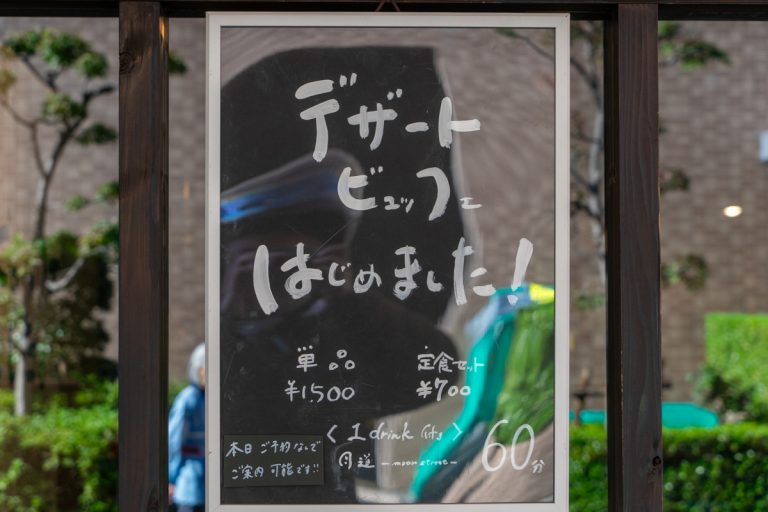 デザート
ビュッフェ
はじめました!
単品 定食セット
¥1,500 ¥700
〈1 drink 付き〉
月道 -moon street- 60分
本日 ご予約なしで
ご案内 可能です!!